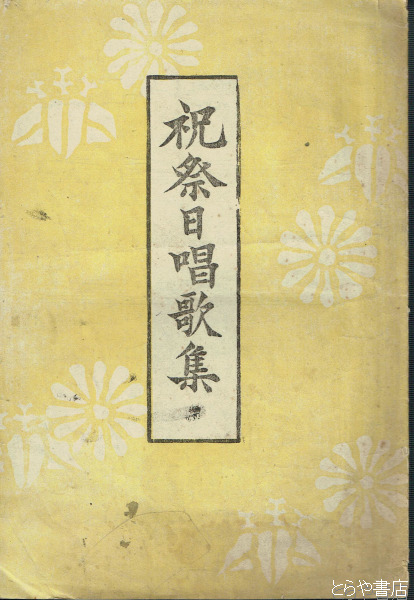 祝祭日唱歌集
とらや書店